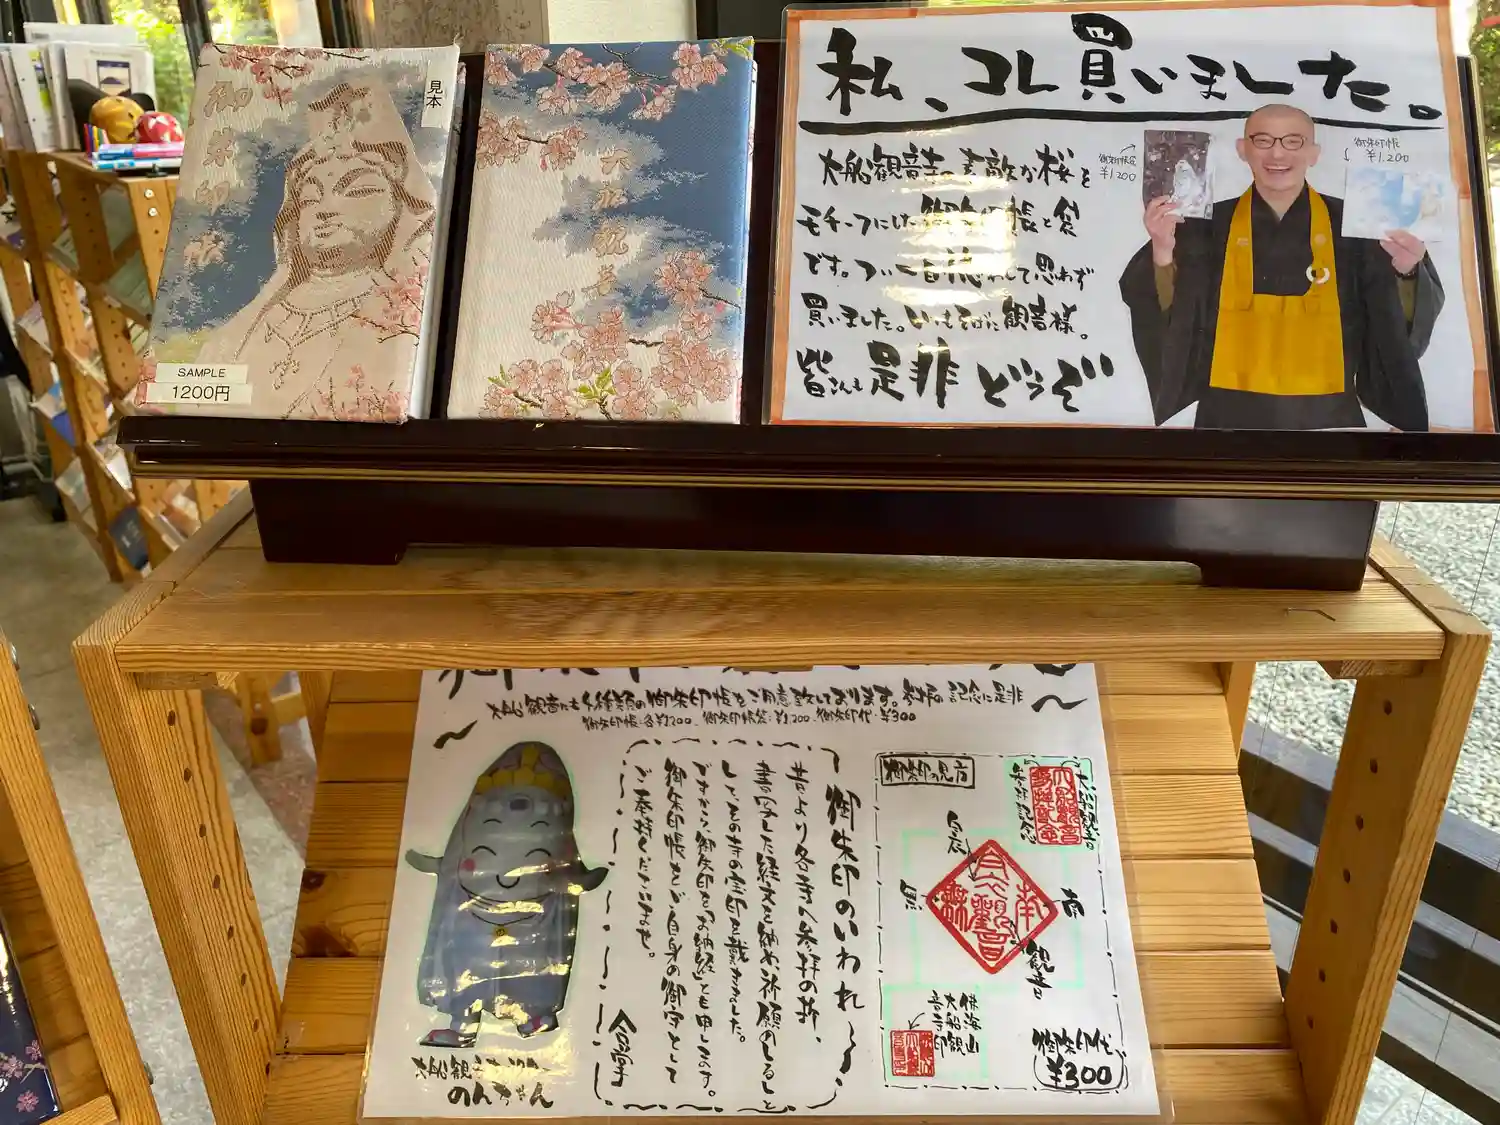 御朱印帳
見本
SAMPLE
1200円
大船観音
私、コレ買いました。
大船観音寺の素敵な桜を
モチーフにした御朱印帳と袋
です。つい一目惚れして思わず
買いました。いつもそばに観音様。
皆さんも是非どうぞ
御朱印帳袋
¥1,200
御朱印帳
¥1,200
大船観音にも多種類の御朱印帳をご用意致しております。参拝の記念に是非
御朱印帳:各¥1,200 御朱印帳袋:¥1,200 御朱印代:¥300
御朱印のいわれ
昔より各寺へ参拝の折、
書写した経文を納め、祈願のしるしと
してその寺の宝印を戴きました。
ですから、御朱印を「お納経」とも申します。
御朱印帳をご自身の御守として
ご奉持くださいませ。
合掌
のんちゃん
御朱印の見方
大船観音
参拝記念
南
無
観音
佛海山
大船観
音寺印
御朱印代
¥300